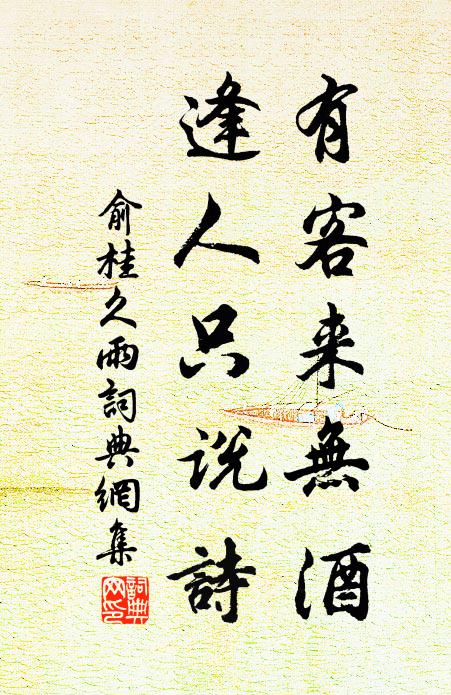 有客来無酒
逢人只説詩
俞桂久雨詞典網集
詞典網印